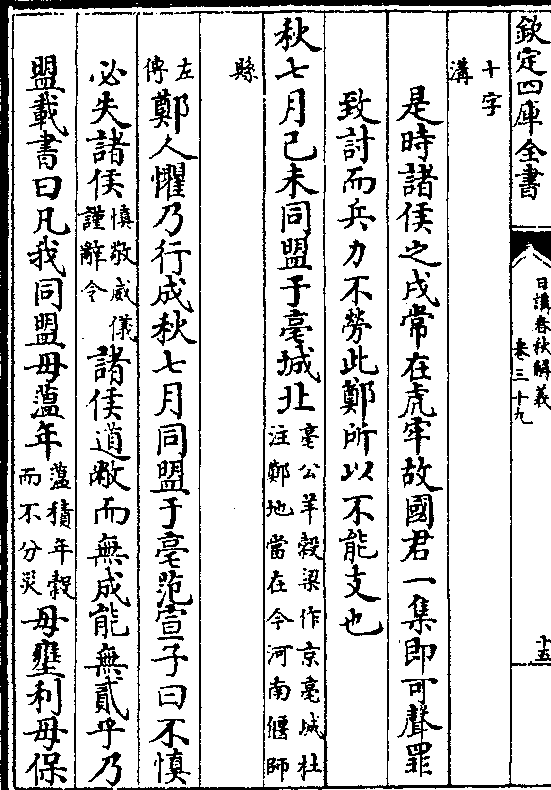 欽定四庫全書
日講春秋解義
卷三十九
十五
十字
溝
是時諸侯之戍常在虎牢故國君一集即可聲罪
致討而兵力不勞此鄭所以不能支也
秋七月己未同盟于亳城北亳公羊穀梁作京亳城杜注鄭地當在今河南偃師
縣
左傳鄭人懼乃行成秋七月同盟于亳范宣子曰不慎
必失諸侯慎敬威儀謹辭令諸侯道敝而無成能無貳乎乃
盟載書曰凡我同盟毋薀年薀積年穀而不分災毋壅利毋保